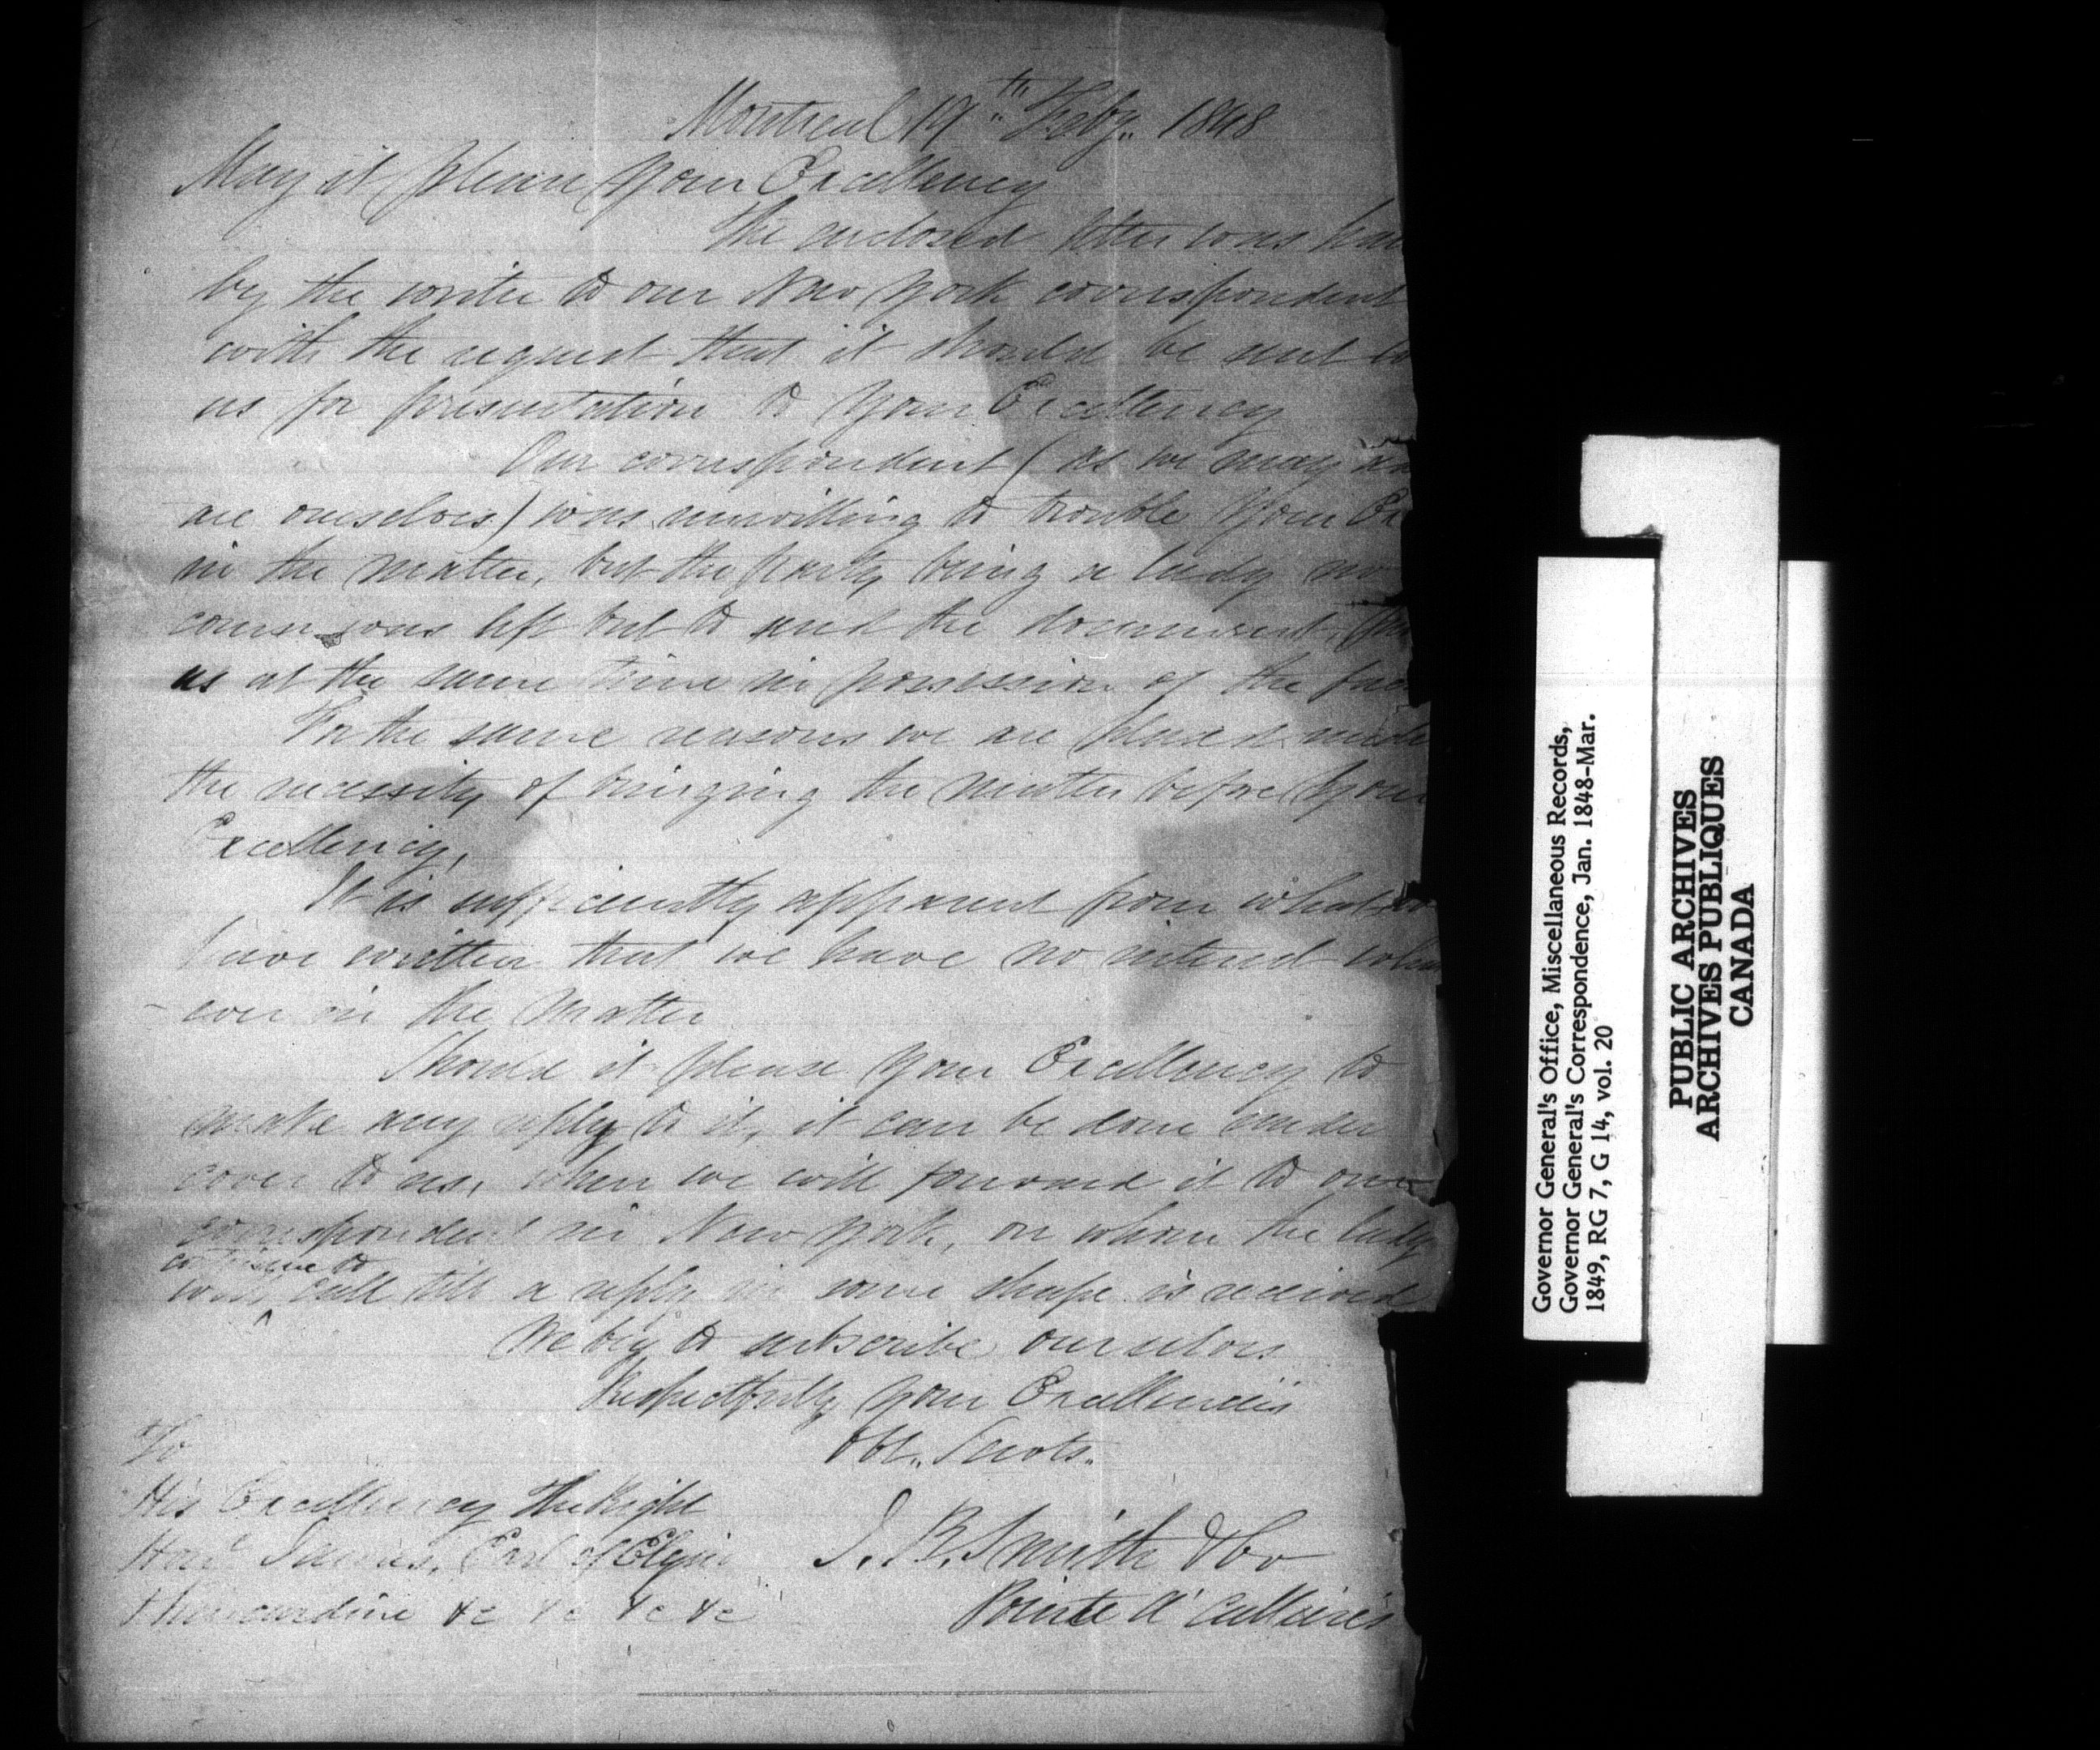 Montreal 19th Feby. 1848
May it please your Excellency
The enclosed letter was
by the writer to our New York correspondent
with the request that it should be sent to
us for presentation to your Excellency
Our correspondent (as we may
are ourselves) was unwilling to trouble your Ex
in the matter, but the party being a lady no
course was left but to send the document,
us at the same time in possession of the fac
For the same reasons we are placed under
the necessity of bringing the matter before your
Excellency,
It is sufficiently apparent from what we
have written that we have no interest what
- ever in the matter
Should it please your Excellency to
make any reply to it, it can be done under
cover to us, when we will forward it to our
correspondent in New York, on whom the lady
continue to
will ^ call till a reply in some shape is received
We beg to subscribe ourselves
Respectfully your Excellencies
Obt. Servts.
To
His Excellency the Right
Honl. James, Earl of Elgin
& Kincardine &c &c &c &c
J. B. Smith & Co
Pointe a' Callieres
Governor General's Office, Miscellaneous Records,
Governor General's Correspondence, Jan. 1848-Mar.
1849, RG 7, G 14, vol. 20
PUBLIC ARCHIVES
ARCHIVES PUBLIQUES
CANADA